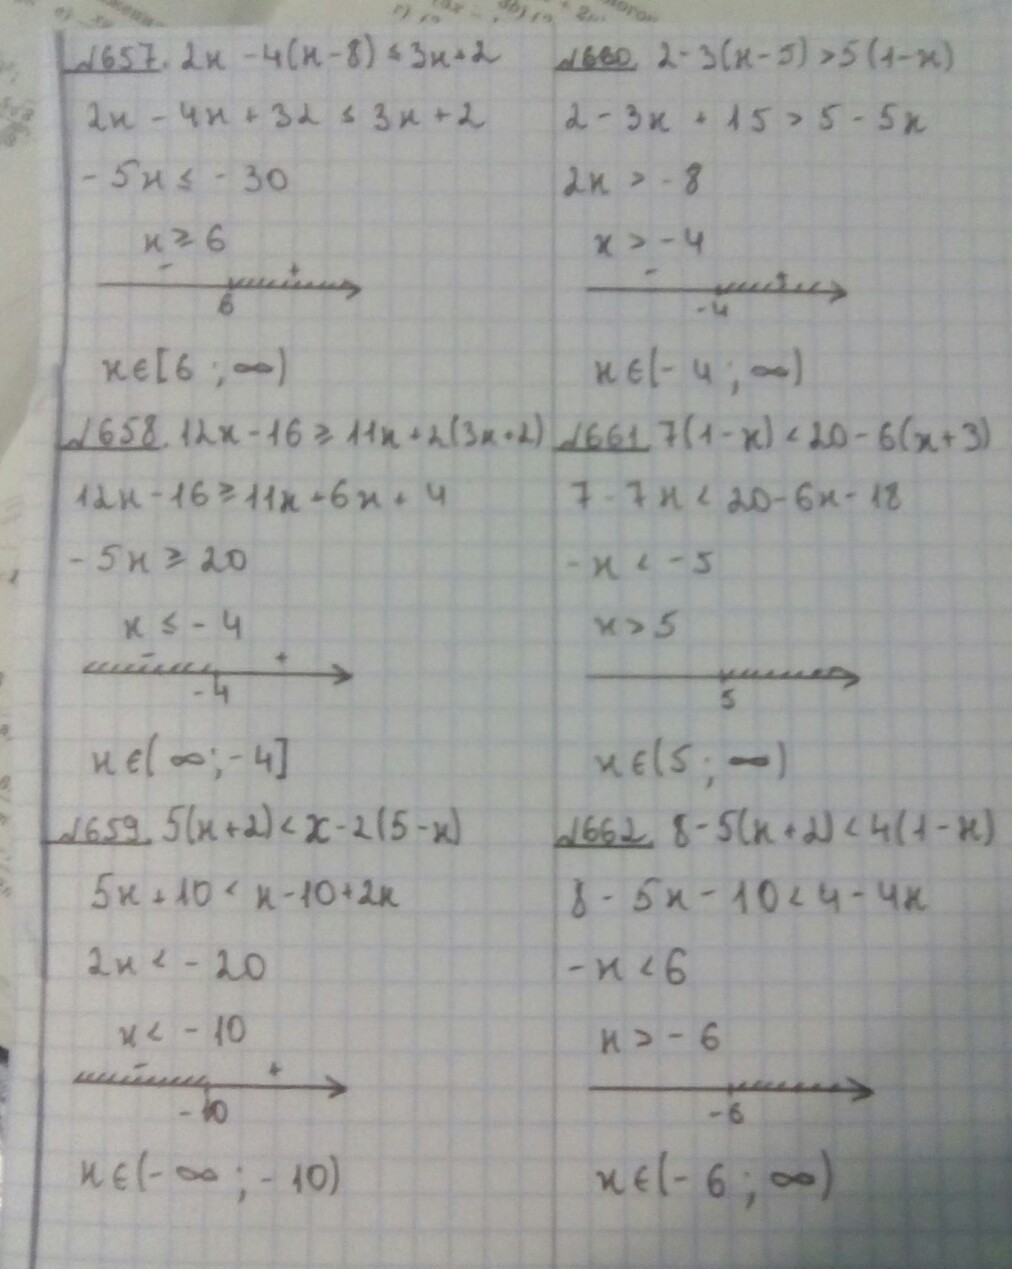 №657. 2x - 4(x-8) ≤ 3x+2
2x - 4x + 32 ≤ 3x + 2
-5x ≤ -30
x ≥ 6
- +
6
x∈[6 ; ∞)
№658. 12x-16 ≥ 11x+2(3x+2)
12x-16 ≥ 11x+6x+4
-5x ≥ 20
x ≤ -4
- +
-4
x∈(∞;-4]
№659. 5(x+2)<x-2(5-x)
5x+10 < x-10+2x
2x < -20
x < -10
- +
-10
x∈(-∞ ; -10)
№660. 2-3(x-5) >5(1-x)
2-3x+15 > 5-5x
2x > -8
x > -4
- +
-4
x∈(-4 ; ∞)
№661. 7(1-x) < 20-6(x+3)
7-7x < 20-6x-18
-x < -5
x > 5
5
x∈(5 ; ∞)
№662. 8-5(x+2) < 4(1-x)
8-5x-10 < 4-4x
-x < 6
x > -6
-6
x∈(-6 ; ∞)